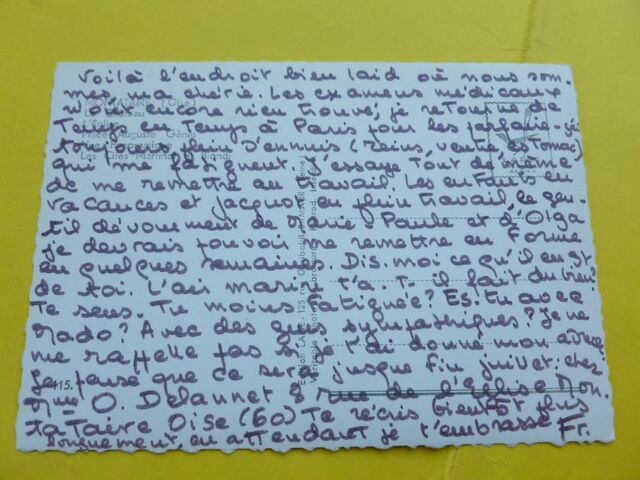 Voilà l'endroit bien laid où nous som-
mes, ma chérie. Les examens médicaux
n'ont encore rien trouvé, je retourne de
Temps en Temps à Paris pour les parfaire. j'ai
toujours plein d'ennuis (Reins, ventre, esTomac)
qui me fatiguent. j'essaye Tout de même
de me remettre au Travail. Les enfants en
vacances et jacquot en plein travail, le gen-
til dévouement de Marie-Paule et d'Olga
je devrais pouvoir me remettre en Forme
en quelques semaines. Dis-moi ce qu'il en est
de toi. L'air marin t'a-T-il fait du bien?
Te sens-Tu moins fatiguée? Es-tu avec
Rado? Avec des gens sympathiques? Je ne
me rappelle pas si je t'ai donné mon adresse
je pense que ce sera jusque fin juillet: chez
Mme O. Delannet 8 rue de l'Eglise Mon-
taTaire Oise (60) Te récris bientôt plus
longuement, en attendant je t'embrasse Fr.
MONTATAIRE (Oise)
Château
L'Eglise
Place Auguste Génie
Vue Panoramique
Les Cités Marinoni et Biondi
415.